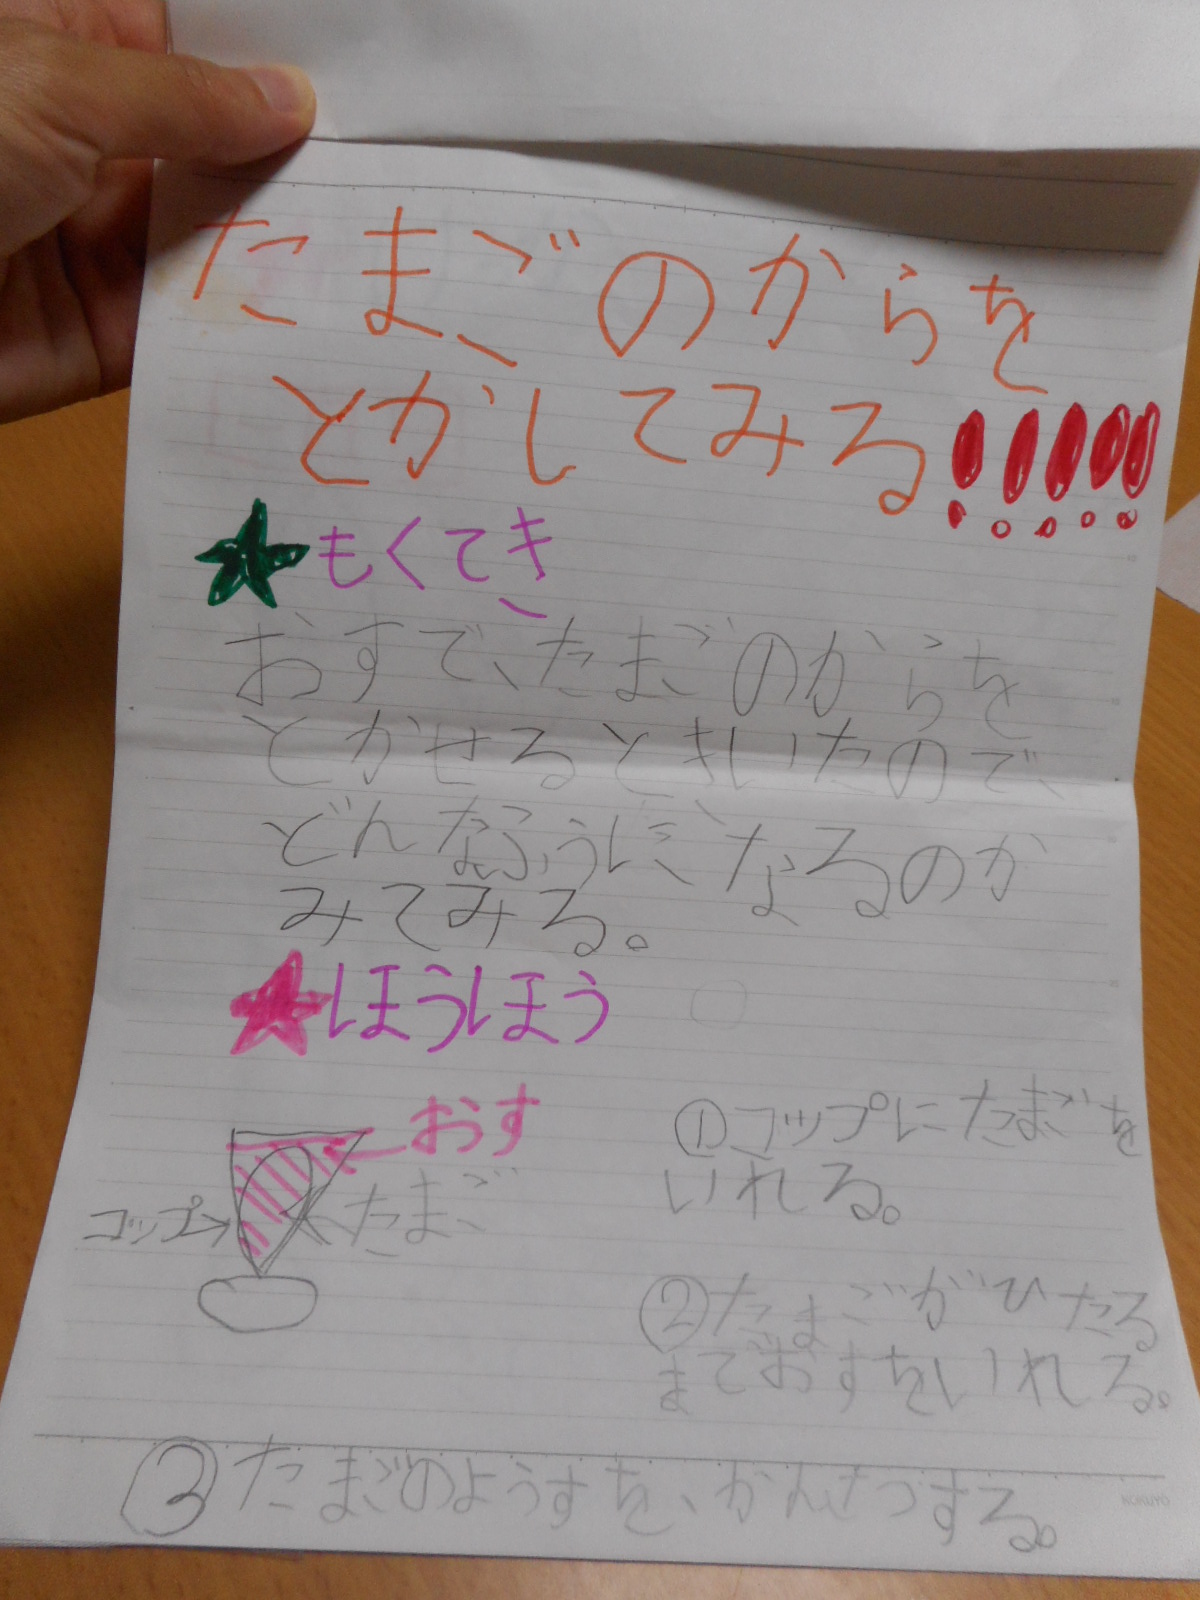 たまごのからを
とかしてみる!!!!!
★もくてき
おすで、たまごのからを
とかせるときいたので、
どんなふうに、なるのか
みてみる。
★ほうほう
おす
コップ→
たまご
①コップにたまごを
いれる。
②たまごがひたる
までおすをいれる。
③たまごのようすを、かんさつする。
KOKUYO